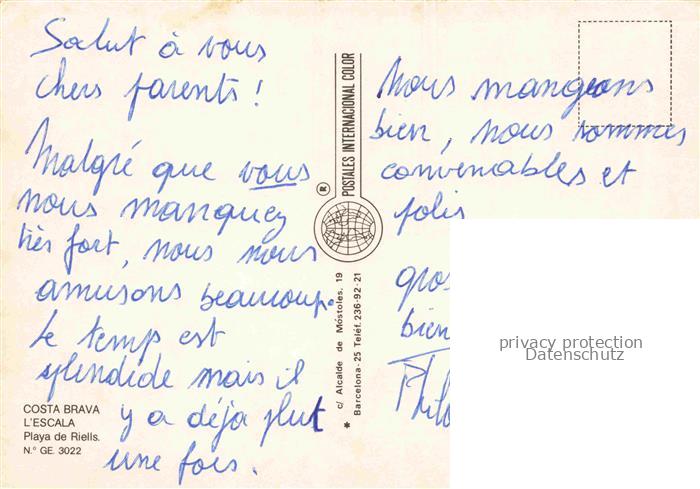 Salut à vous
chers parents !
Malgré que vous
nous manquez
très fort, nous nous
amusons beaucoup.
Le temps est
splendide mais il
y a déjà plut
une fois.
Nous mangeons
bien, nous sommes
convenables et
polis
gros
bien
COSTA BRAVA
L'ESCALA
Playa de Riells.
N.° GE. 3022
® POSTALES INTERNACIONAL COLOR
* c/ Alcalde de Móstoles, 19
Barcelona-25 Teléf. 236-92-21
privacy protection
Datenschutz